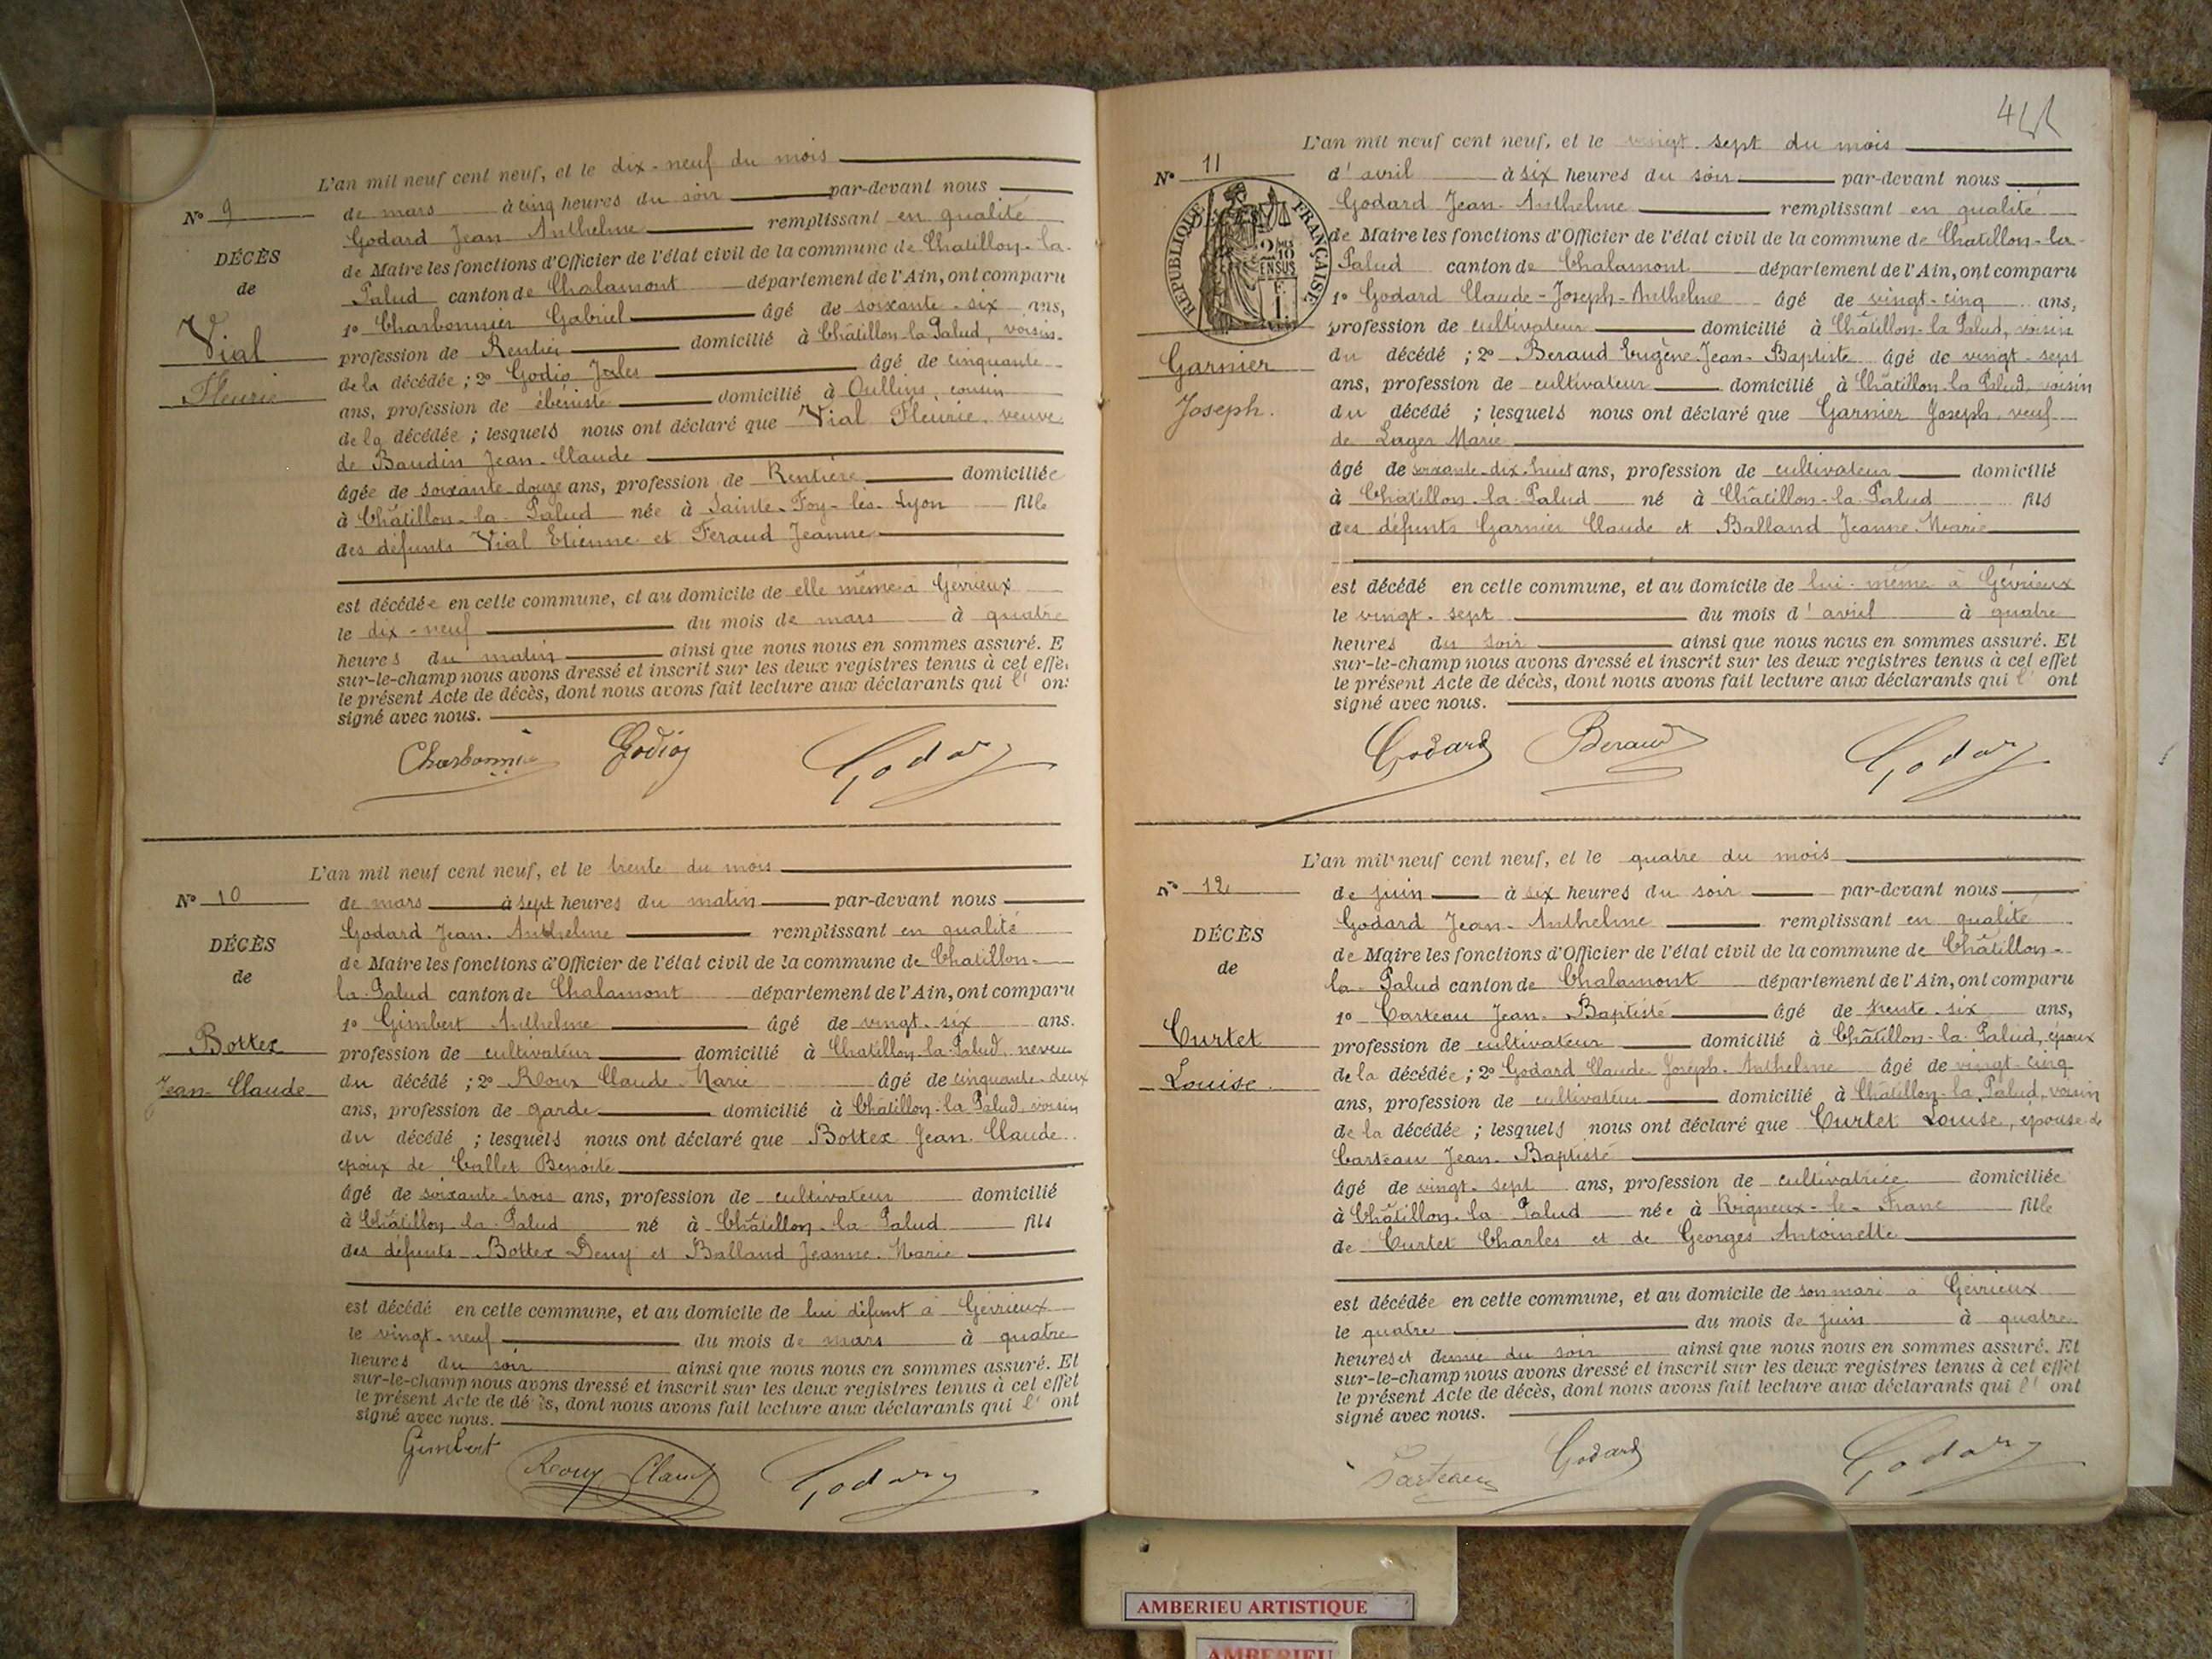 L'an mil neuf cent neuf, et le dix-neuf du mois
N° 9
de mars à cinq heures du soir par-devant nous
Godard Jean Anthelme remplissant en qualité
DÉCÈS
de
de Maire les fonctions d'Officier de l'état civil de la commune de Chatillon-la-
Palud canton de Chalamont département de l'Ain, ont comparu
1° Charbonnier Gabriel âgé de soixante-six ans,
Vial
Fleurie
profession de Rentier domicilié à Châtillon-la-Palud, voisin
de la décédée ; 2° Godio Jules âgé de cinquante
ans, profession de ébéniste domicilié à Oullins, cousin
de la décédée ; lesquels nous ont déclaré que Vial Fleurie, veuve
de Baudin Jean-Claude
âgée de soixante-douze ans, profession de Rentière domiciliée
à Châtillon-la-Palud née à Sainte-Foy-lès-Lyon fille
des défunts Vial Etienne et Feraud Jeanne
est décédée en cette commune, et au domicile de elle même à Gévrieux
le dix-neuf du mois de mars à quatre
heures du matin ainsi que nous nous en sommes assuré. E
sur-le-champ nous avons dressé et inscrit sur les deux registres tenus à cet effe
le présent Acte de décès, dont nous avons fait lecture aux déclarants qui l' ont
signé avec nous.
Charbonnier Godio Godard
L'an mil neuf cent neuf, et le trente du mois
N° 10
de mars à sept heures du matin par-devant nous
Godard Jean-Anthelme remplissant en qualité
DÉCÈS
de
de Maire les fonctions d'Officier de l'état civil de la commune de Chatillon-
la-Palud canton de Chalamont département de l'Ain, ont comparu
1° Gimbert Anthelme âgé de vingt-six ans.
Bottex
Jean-Claude
profession de cultivateur domicilié à Chatillon-la-Palud, neveu
du décédé ; 2° Roux Claude-Marie âgé de cinquante-deux
ans, profession de garde domicilié à Châtillon-la-Palud, voisin
du décédé ; lesquels nous ont déclaré que Bottex Jean-Claude
époux de Callet Benoite
âgé de soixante-trois ans, profession de cultivateur domicilié
à Châtillon-la-Palud né à Châtillon-la-Palud fils
des défunts Bottex Deny et Balland Jeanne-Marie
est décédé en cette commune, et au domicile de lui défunt à Gévrieux
le vingt-neuf du mois de mars à quatre
heures du soir ainsi que nous nous en sommes assuré. Et
sur-le-champ nous avons dressé et inscrit sur les deux registres tenus à cet effet
le présent Acte de décès, dont nous avons fait lecture aux déclarants qui l' ont
signé avec nous.
Gimbert Roux Claude Godard
L'an mil neuf cent neuf, et le vingt-sept du mois
N° 11
d'avril à six heures du soir par-devant nous
Godard Jean-Anthelme remplissant en qualité
RÉPUBLIQUE FRANÇAISE
de Maire les fonctions d'Officier de l'état civil de la commune de Chatillon-la-
Palud canton de Chalamont département de l'Ain, ont comparu
1° Godard Claude-Joseph-Anthelme âgé de vingt-cinq ans,
profession de cultivateur domicilié à Châtillon-la-Palud, voisin
Garnier
Joseph.
du décédé ; 2° Beraud Eugène-Jean-Baptiste âgé de vingt-sept
ans, profession de cultivateur domicilié à Châtillon-la-Palud, voisin
du décédé ; lesquels nous ont déclaré que Garnier Joseph, veuf
de Lager Marie
âgé de soixante-dix-huit ans, profession de cultivateur domicilié
à Châtillon-la-Palud né à Châtillon-la-Palud fils
des défunts Garnier Claude et Balland Jeanne-Marie
est décédé en cette commune, et au domicile de lui-même à Gévrieux
le vingt-sept du mois d'avril à quatre
heures du soir ainsi que nous nous en sommes assuré. Et
sur-le-champ nous avons dressé et inscrit sur les deux registres tenus à cet effet
le présent Acte de décès, dont nous avons fait lecture aux déclarants qui l' ont
signé avec nous.
Godard Beraud Godard
L'an mil neuf cent neuf, et le quatre du mois
N° 12
de juin à six heures du soir par-devant nous
Godard Jean-Anthelme remplissant en qualité
DÉCÈS
de
de Maire les fonctions d'Officier de l'état civil de la commune de Châtillon-
la-Palud canton de Chalamont département de l'Ain, ont comparu
1° Carteau Jean-Baptiste âgé de trente-six ans,
Curtet
Louise.
profession de cultivateur domicilié à Châtillon-la-Palud, époux
de la décédée ; 2° Godard Claude-Joseph-Anthelme âgé de vingt-cinq
ans, profession de cultivateur domicilié à Châtillon-la-Palud, voisin
de la décédée ; lesquels nous ont déclaré que Curtet Louise, épouse de
Carteau Jean-Baptiste
âgé de vingt-sept ans, profession de cultivatrice domiciliée
à Châtillon-la-Palud née à Rigneux-le-Franc fille
de Curtet Charles et de Georges Antoinette
est décédée en cette commune, et au domicile de son mari à Gévrieux
le quatre du mois de juin à quatre
heures et demie du soir ainsi que nous nous en sommes assuré. Et
sur-le-champ nous avons dressé et inscrit sur les deux registres tenus à cet effet
le présent Acte de décès, dont nous avons fait lecture aux déclarants qui l' ont
signé avec nous.
Carteau Godard Godard
AMBERIEU ARTISTIQUE
AMBERIEU